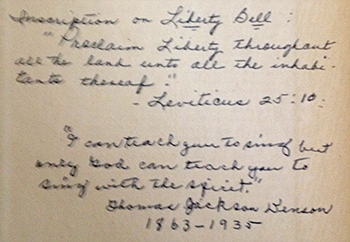 Inscription on Liberty Bell :
"Proclaim Liberty throughout
all the land unto all the inhabi-
tants thereof."
- Leviticus 25:10:
"I can teach you to sing but
only God can teach you to
sing with the spirit."
Thomas Jackson Denson
1863-1935